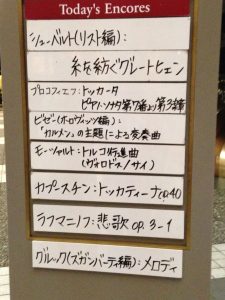 Today's Encores
シューベルト(リスト編):
糸を紡ぐグレートヒェン
プロコフィエフ:トッカータ
ピアノソナタ第7番より第3楽章
ビゼー(ホロヴィッツ編):
「カルメン」の主題による変奏曲
モーツァルト:トルコ行進曲
(ヴォロドス/サイ)
カプースチン:トッカティーナop.40
ラフマニノフ:悲歌op.3-1
グルック(ズガンバーティ編):メロディ